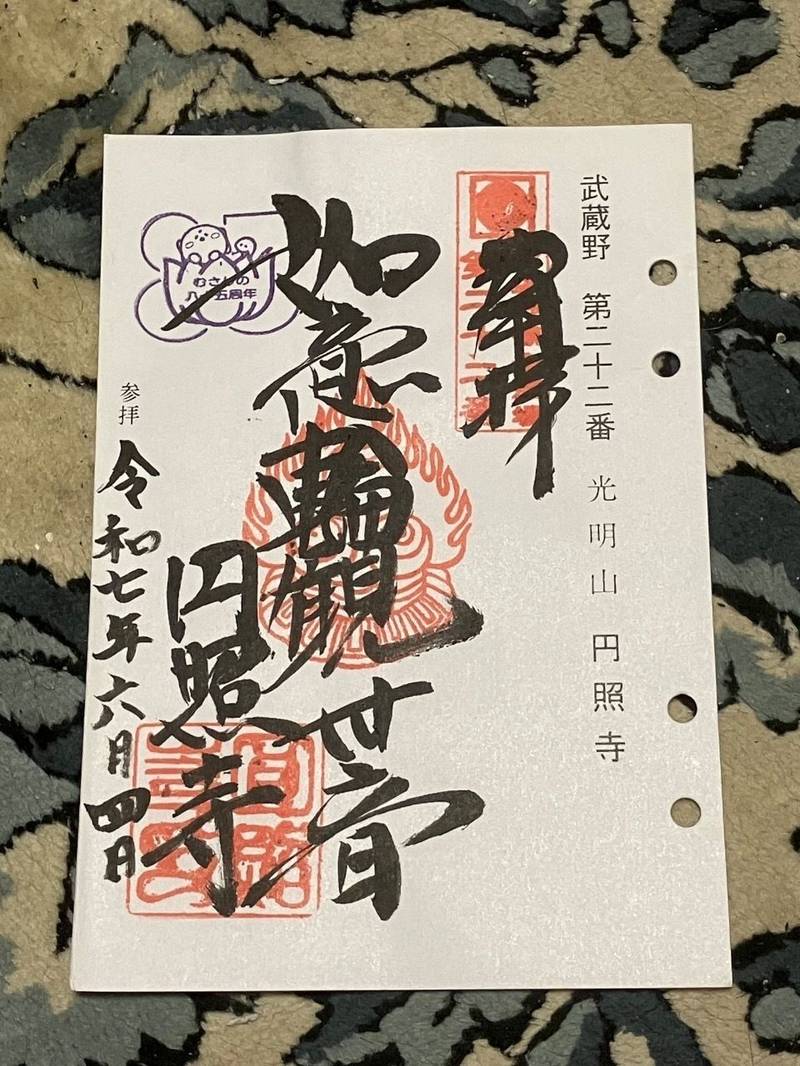 武蔵野 第二十二番 光明山 円照寺
奉拝
第二十二番
如意輪観世音
円照寺
むさしの
八十五周年
参拝 令和七年六月四日